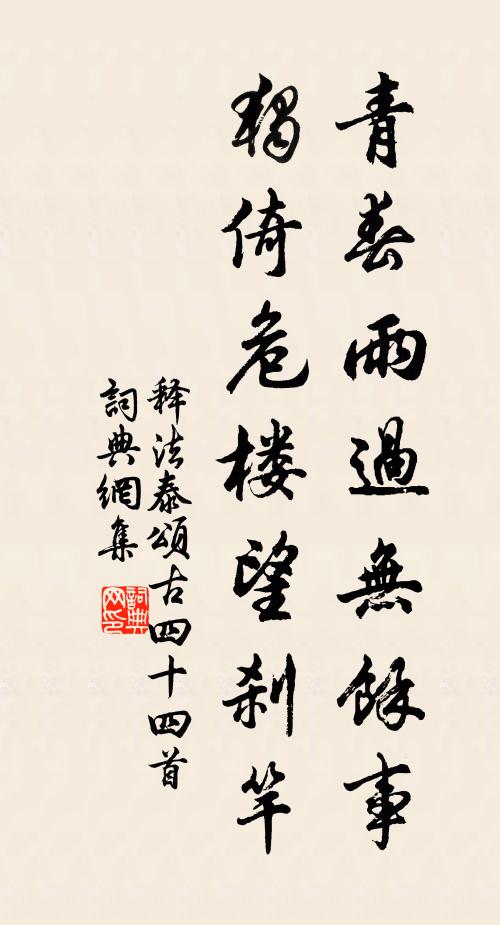 青春雨過無餘事
獨倚危楼望刹竿
释法泰頌古四十四首
詞典網集
詞典网印